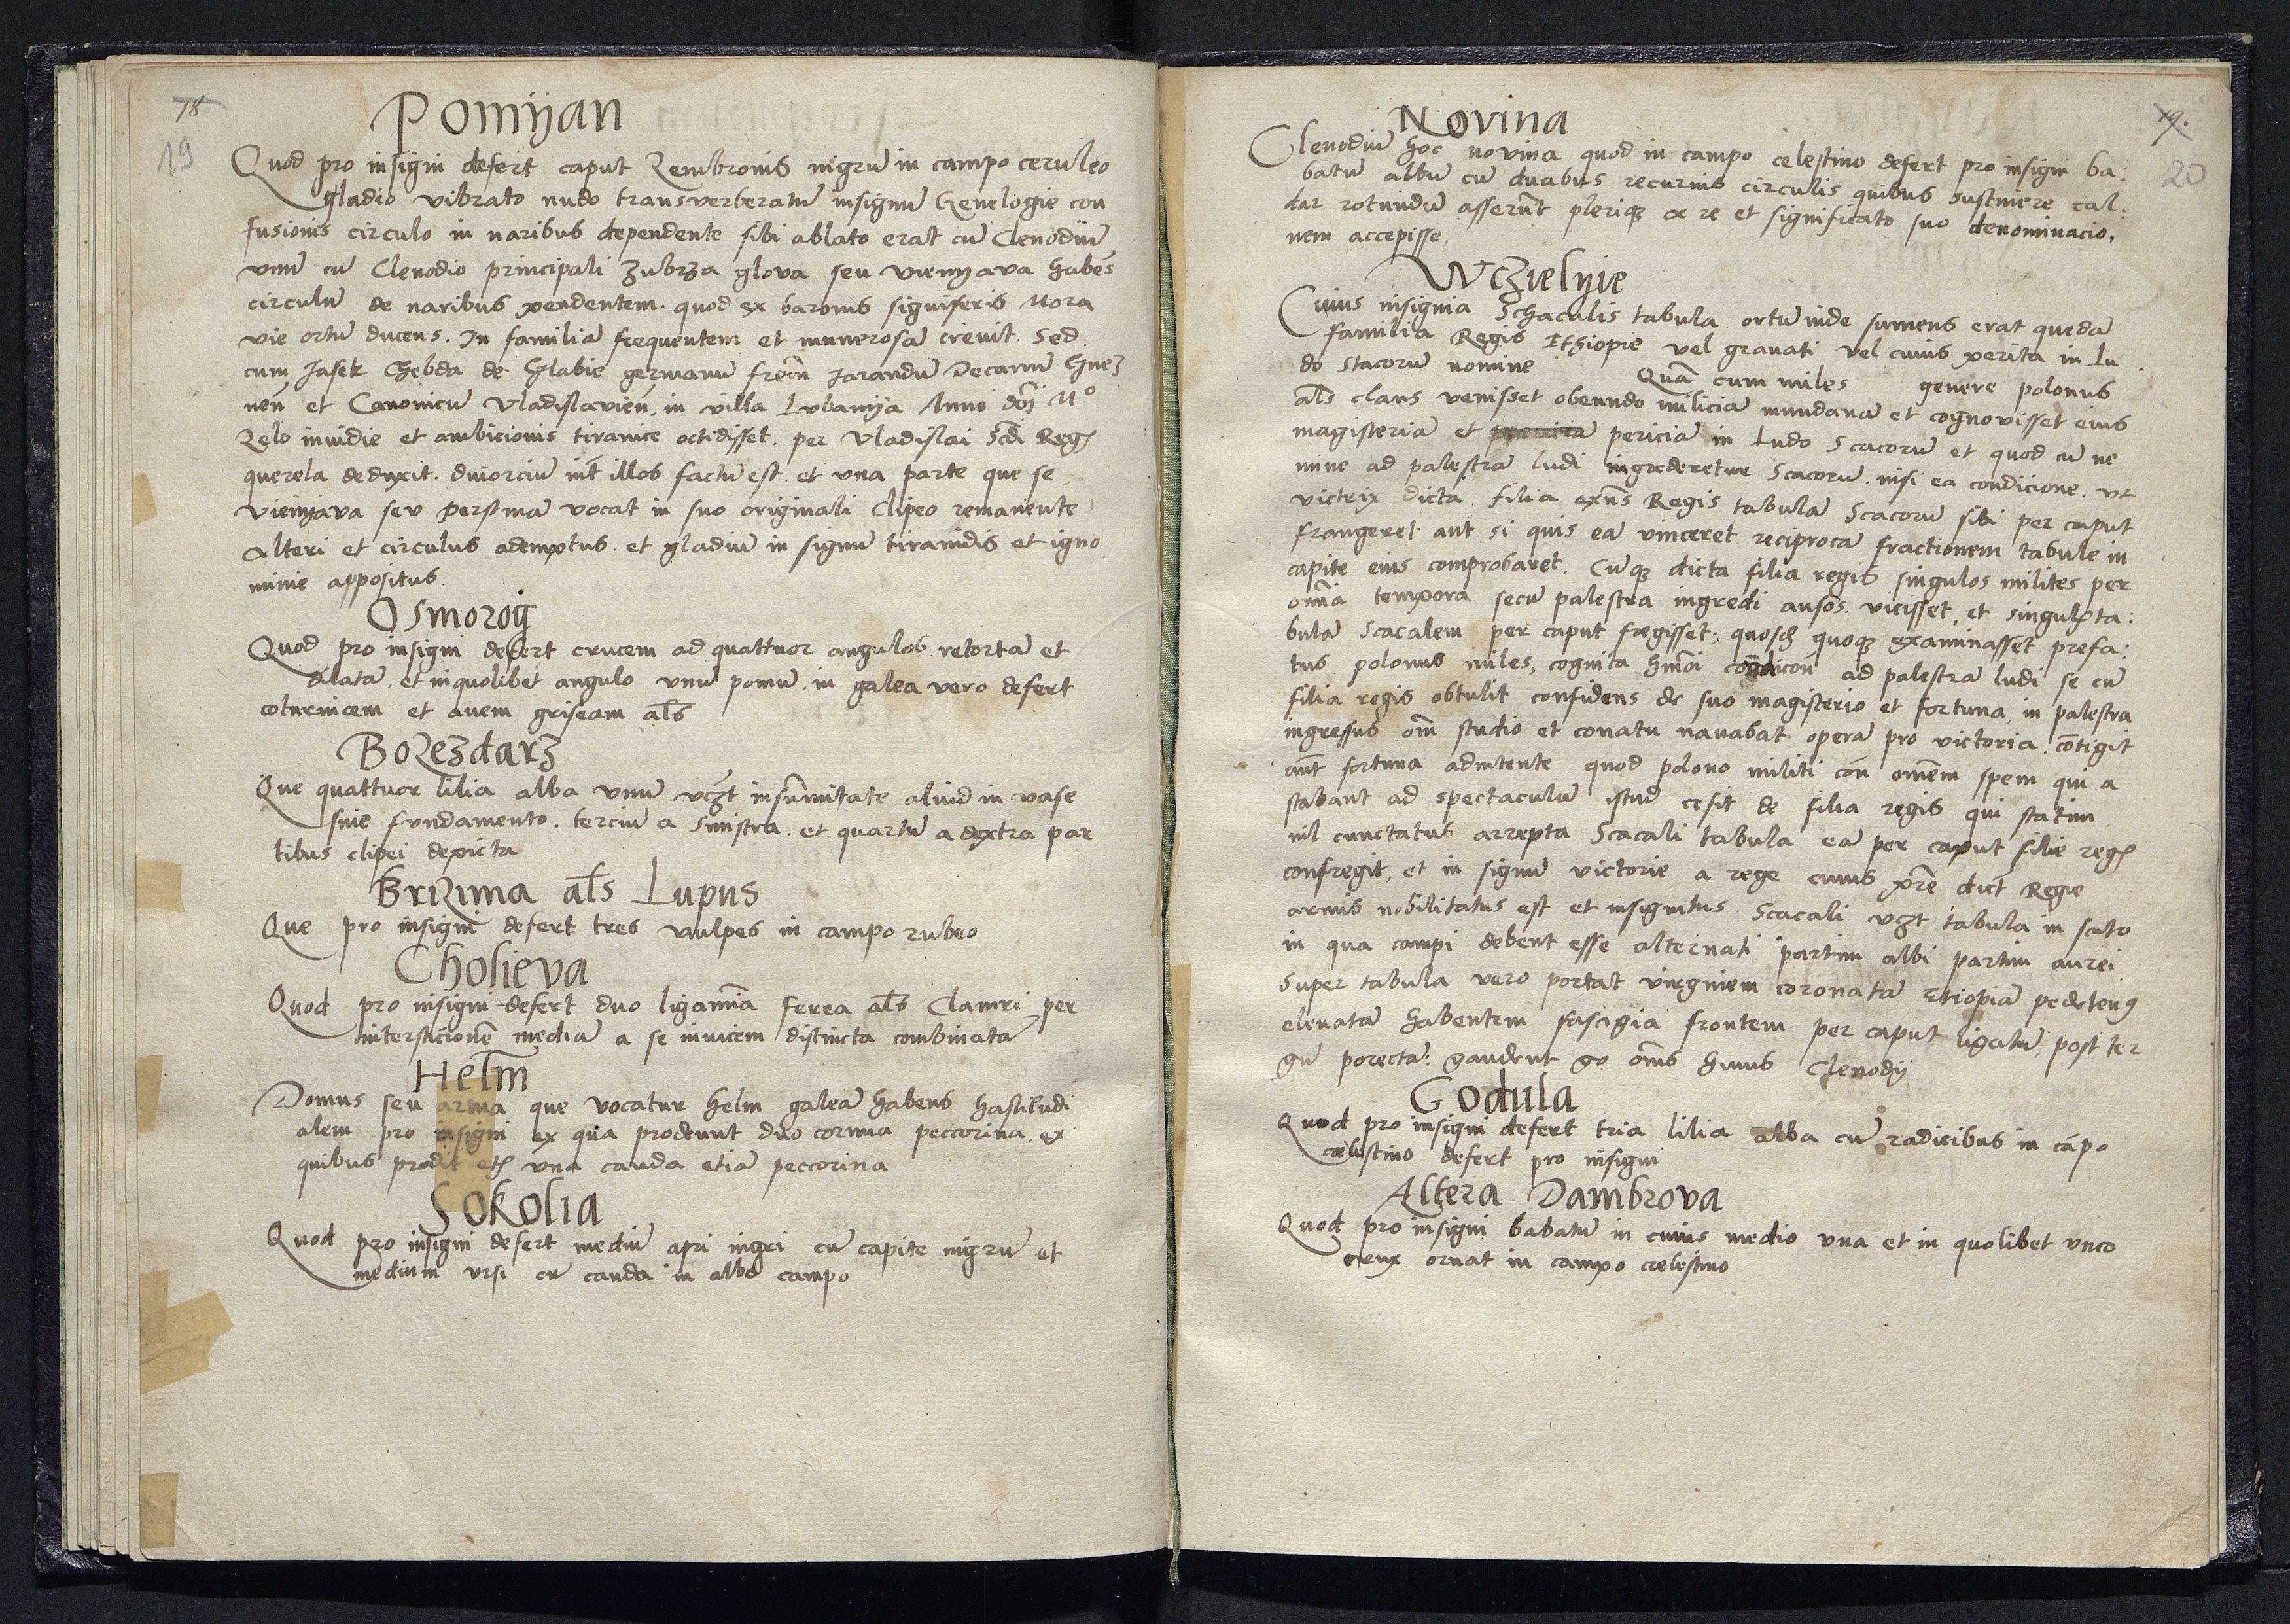 78
19
Pomÿan
Quod pro insigni defert caput Zembronis nigrū in campo ceruleo
gladio vibrato nudo transverberatū insignū Genelogie con
fusionis circulo in naribus dependente sibi ablato erat cū Clenodiū
vnū cū Clenodio principali Zubrza glova seu vienÿava habēs
circulū de naribus pendentem. quod ex baronis signiferis Mora
vie ortū ducens. In familiā frequentem et numerosā crevit. Sed
cum Jasek Chebda de Glabie germanū frēm Jarandū Decanū Gnez
nēn et Canonicū Vladislaviēn. in villa Lvbanÿa Anno dōi Mº
Zelo invidie et ambicionis tiranice occidisset. per Vladislai Scdi Reg
querela deduxit. divorciū int illos factū est. et vna parte que se
vienÿava sev perstina vocat in suo originali Clipeo remanente
Alteri et circulus ademptus. et gladiū in signū tiranidis et igno
minie appositus.
Osmorog
Quod pro insigni defert crucem ad quattuor angulos retortā et
dilatā. et in quolibet angulo vnū pomū. in galea vero defert
coturnicem et avem griseam als
Bozezdarz
Que quattuor lilia alba vnū vczt in sūmitate aliud in vase
sive fundamento. terciū a Sinistra. et quartū a dextra par
tibus clipei depicta
Brizina als Lupus
Que pro insigni defert tres vulpes in campo rubeo
Cholieva
Quod pro insigni defert duo ligamīa ferea als Clamri per
intersticionē mediā a se invicem distincta combinata
Helm
Domus seu arma que vocatur helm galeā habens hastiludi
alem pro insigni ex qua prodeunt duo cornua peccorina. ex
quibus prodit et vna cauda etiā peccorina
Sokolia
Quod pro insigni defert mediū apri nigri cū capite nigrū et
medium vrsi cū cauda in albo campo
19.
20
Novina
Clenodiū hoc novina quod in campo celestino defert pro insigni ba:
batū albū cū duabus recurvis circulis quibus sustinere cal:
dar rotundū asserūt pleriqz a re et significato suo denominacio.
nem accepisse.
Wczielÿie
Cuius insignia Schacalis tabula ortū inde sumens erat quedā
familia Regis Ethiopie vel granati vel cuius perita in lu
do Stacorū nomine Quā cum miles genere polonus
als clarus venisset obeundo miliciā mundanā et cognovisset eius
magisteriā et periciā in Ludo Scacorū et quod cū ne
mine ad palestrā ludi ingrederetur Scacorū. nisi ea condicione. vt
victrix dicta. filia exns Regis tabulā Scacorū sibi per caput
frangeret aut si quis eā vinceret reciprocā fractionem tabule in
capite eius comprobaret. Cūqz dicta filia regis singulos milites per
omīa tempora secū palestrā ingredi ausos. vicisset et singul ta:
bulā Scacalem per caput fregisset: quosqz quoqz examinasset prefa:
tus polonus miles, cognita hmōi condicōn ad palestrā ludi se cū
filia regis obtulit confidens de suo magisterio et fortuna, in palestrā
ingressus omī studio et conatu navabat operā pro victoria. cōtigit
aūt fortuna adnitente quod polono militi cōn omēm spem qui a
stabant ad spectaculū istud cesit de filia regis qui statim
nil cunctatus arrepta Scacali tabula eā per caput filie reg
confregit, et in signū victorie a rege cuius prē dict Regie
armis nobilitatus est et insignitus Scacali vczt tabula in scuto
in qua campi debent esse alternati partim albi partim aurei
Super tabula vero portat virginem coronatā Etiopiā pedeteng
elevatā habentem fascigia frontem per caput ligatū, post ter
gū porectā: gaudent go oms huius Clenodÿ
Godula
Quod pro insigni defert tria lilia alba cū radicibus in cāpo
celestino defert pro insigni
Altera Dambrova
Quod pro insigni babatū in cuius medio vna et in quolibet vnco
crux ornat in campo celestino